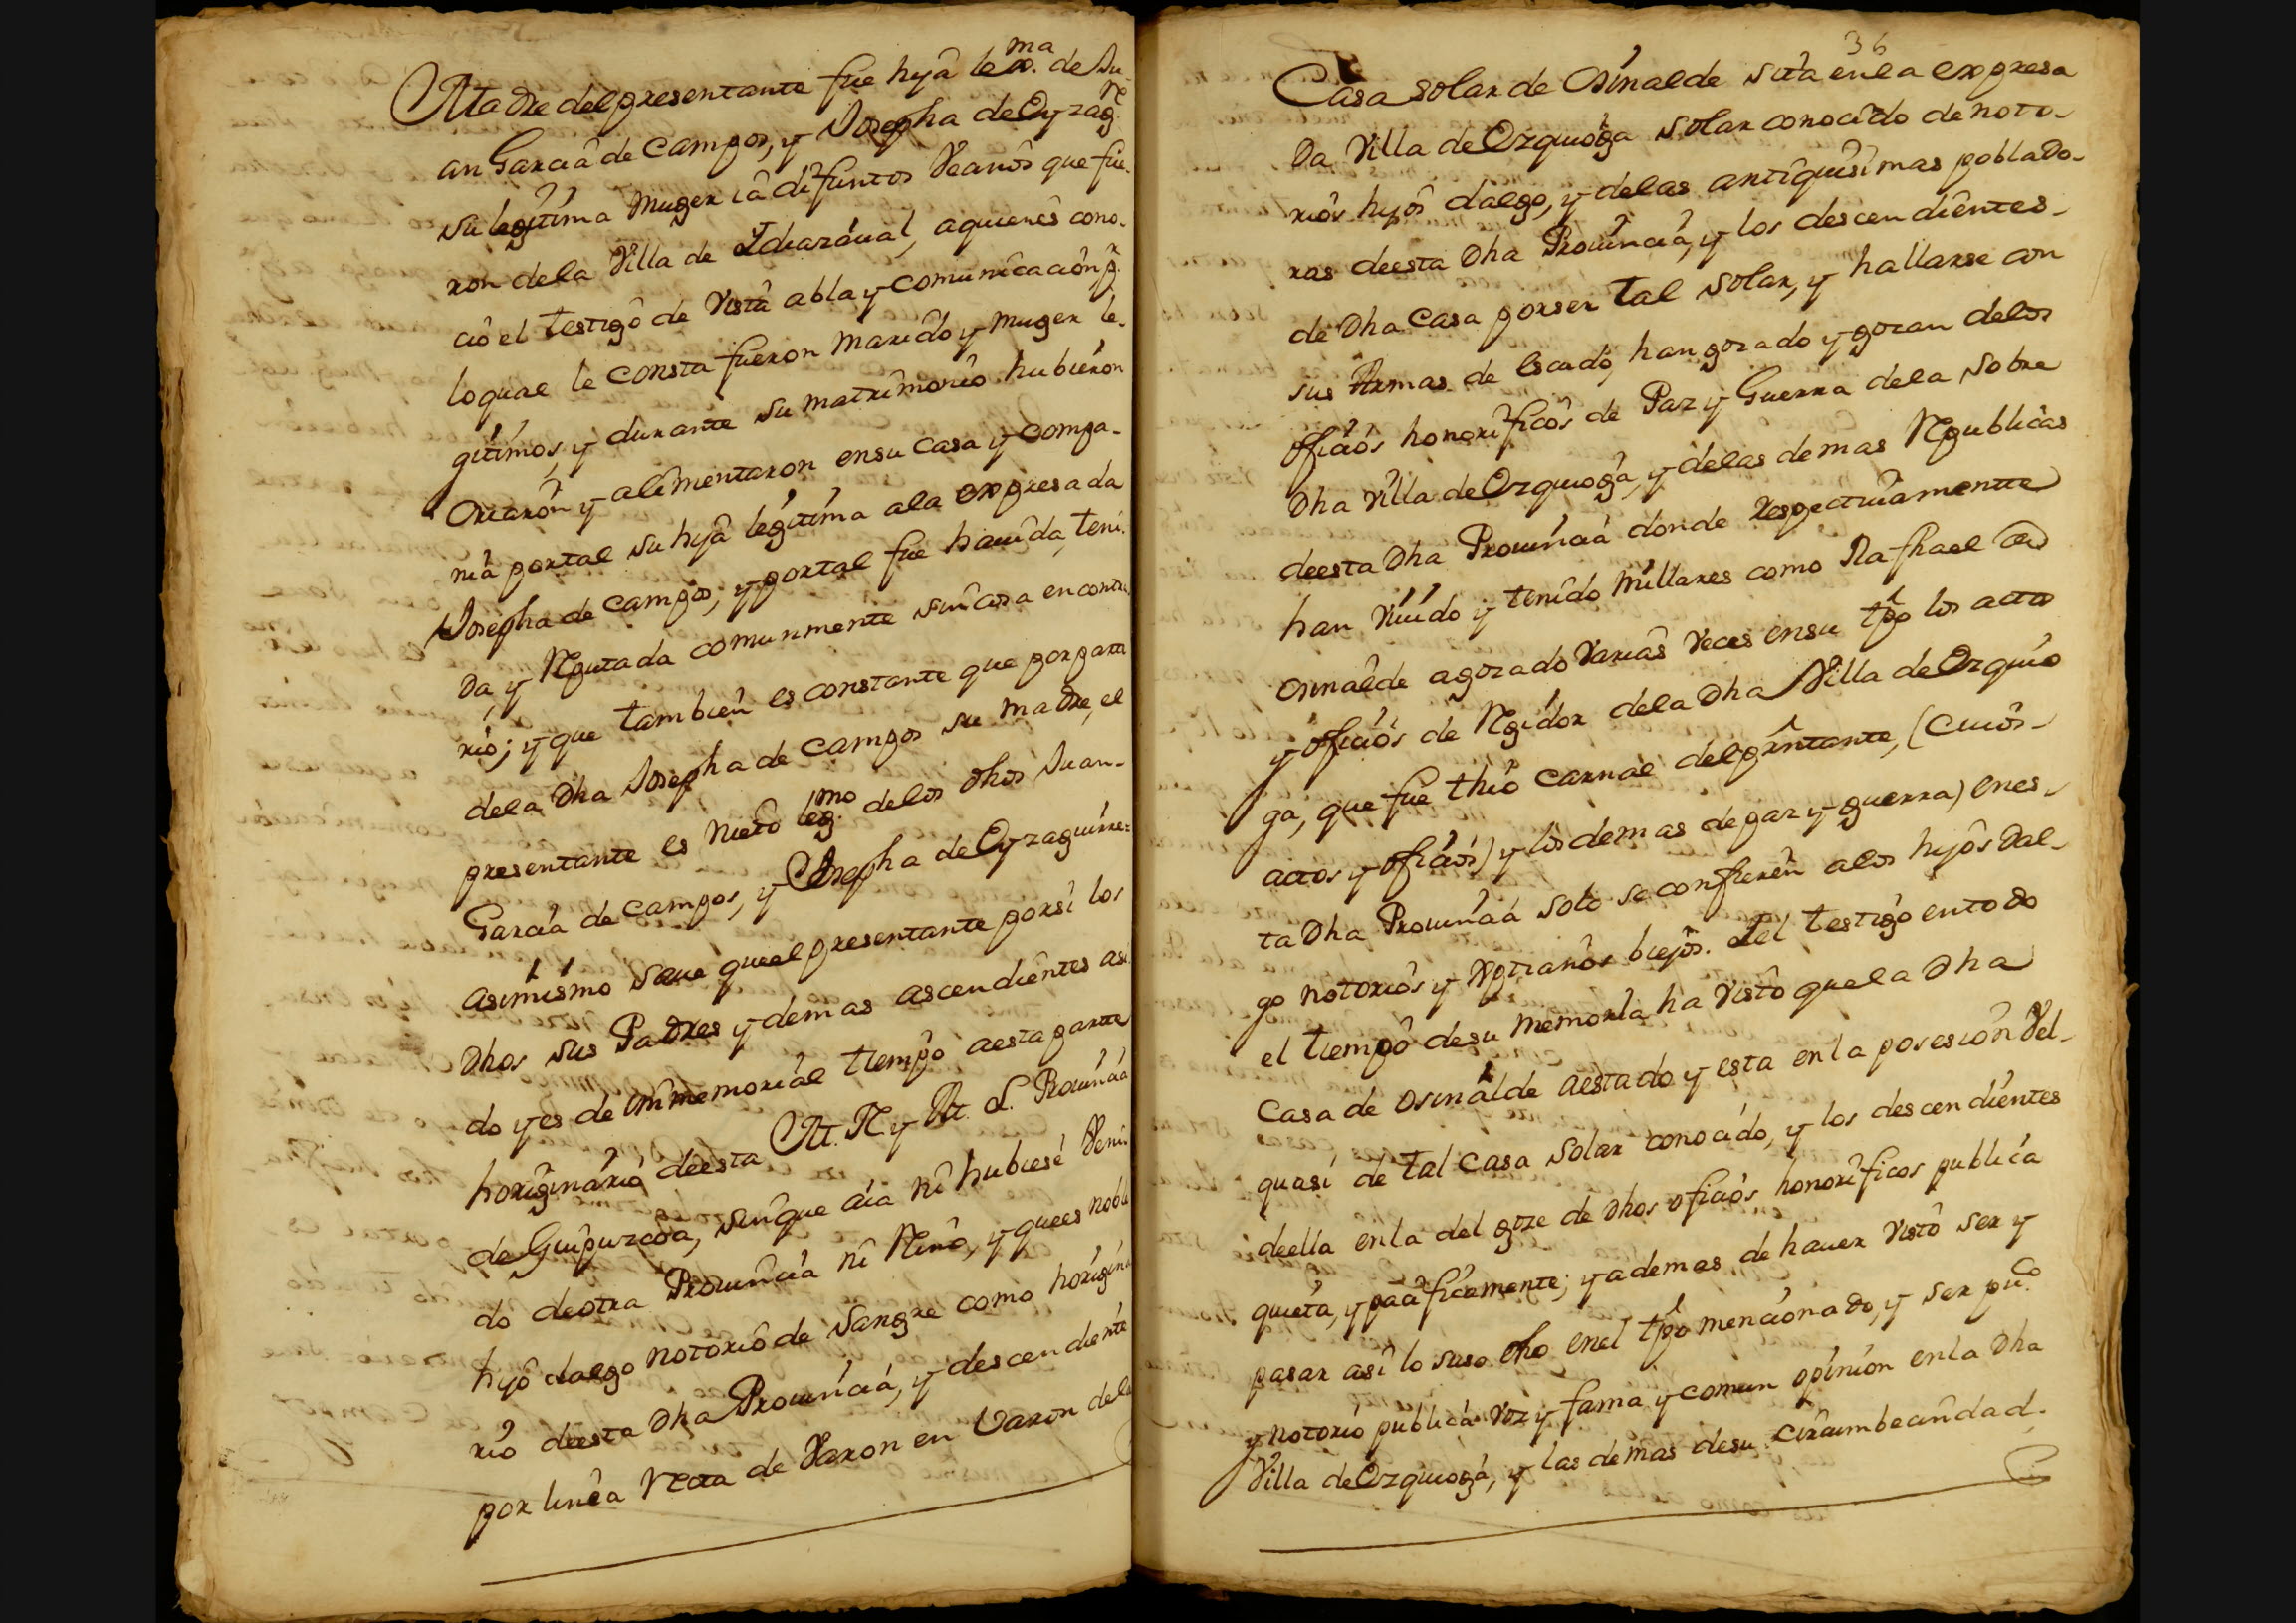 Madre del presentante fue hija lexma. de Ju-
an Garcia de Campos, y Josepha de Oyzagre.
su legitima Muger ia difuntos Veanos que fue-
ron dela Villa de Idiazaual, aquienes cono-
ció el testigo de Vista abla y comunicacion pr.
loqual le consta fueron Marido y Muger le-
gitimos, y durante su matrimonio hubieron
Criaron y alimentaron ensu Casa y Compa-
nia portal su hija legitima ala expresada
Josepha de Campos, y portal fue hauida, teni-
da, y Reputada comunmente sin cosa en contra
rio; y que tambien es constante que por parte
dela Dha Josepha de Campos su Madre, el
presentante es Nieto legmo. delos dhos Juan-
Garcia de Campos, y Josepha de Oyzaguirre=
asimismo saue queel presentante porsi los
Dhos sus Padres y demas ascendientes asi
do y es de immemorial tiempo aesta parte
horiginario deesta M. N. y M. L. Prouincia
de Guipuzcoa, sinque aia ni hubiese Veni
do deotra Prouincia ni Reino, y quees noble
hijo dalgo notorio de Sangre como horigina
rio deesta Dha Prouincia, y descendiente
por linea recta de Varon en Varon dela
36
Casa solar de Osinalde sita enla expresa
Da Villa de Ezquioga solar conocido de noto-
rios hijos dalgo, y delas antiquisimas poblado-
ras deesta Dha Prouincia, y los descendientes-
de Dha Casa porser tal solar, y hallarse con
sus Armas de Escudo, han gozado y gozan delos
oficios honorificos de Paz y Guerra dela sobre
Dha Villa de Ezquioga, y delas demas Republicas
deesta Dha Prouincia donde respectiuamentte
han Viuido y tenido Millares como Raphael de
Osinalde agozado Varias Veces ensu tpo los actos
y oficios de Regidor dela Dha Villa de Ezquio
ga, que fue thio carnal del presentante, (Cuios-
actos y oficios) y los demas de paz y guerra) enes-
ta Dha Prouincia solo se confieren alos hijos Dal-
go notorios y Xptianos biejos. I el testigo entodo
el tiempo desu Memoria ha Visto quela Dha
Casa de Osinalde aestado y esta enla posesion Vel-
quasi de tal Casa Solar conocido, y los descendientes
deella enla del goze de Dhos oficios honorificos publica
quieta, y pacificamente; y ademas de hauer Visto ser y
pasar asi lo suso dho enel tpo mencionado, y ser puco.
y notorio publica Voz y fama y comun opinion enla Dha
Villa de Ezquioga, y las demas desu circumbecindad.